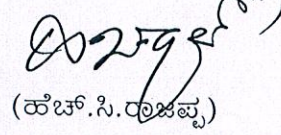 (ಹೆಚ್.ಸಿ.ರಾಜಪ್ಪ)